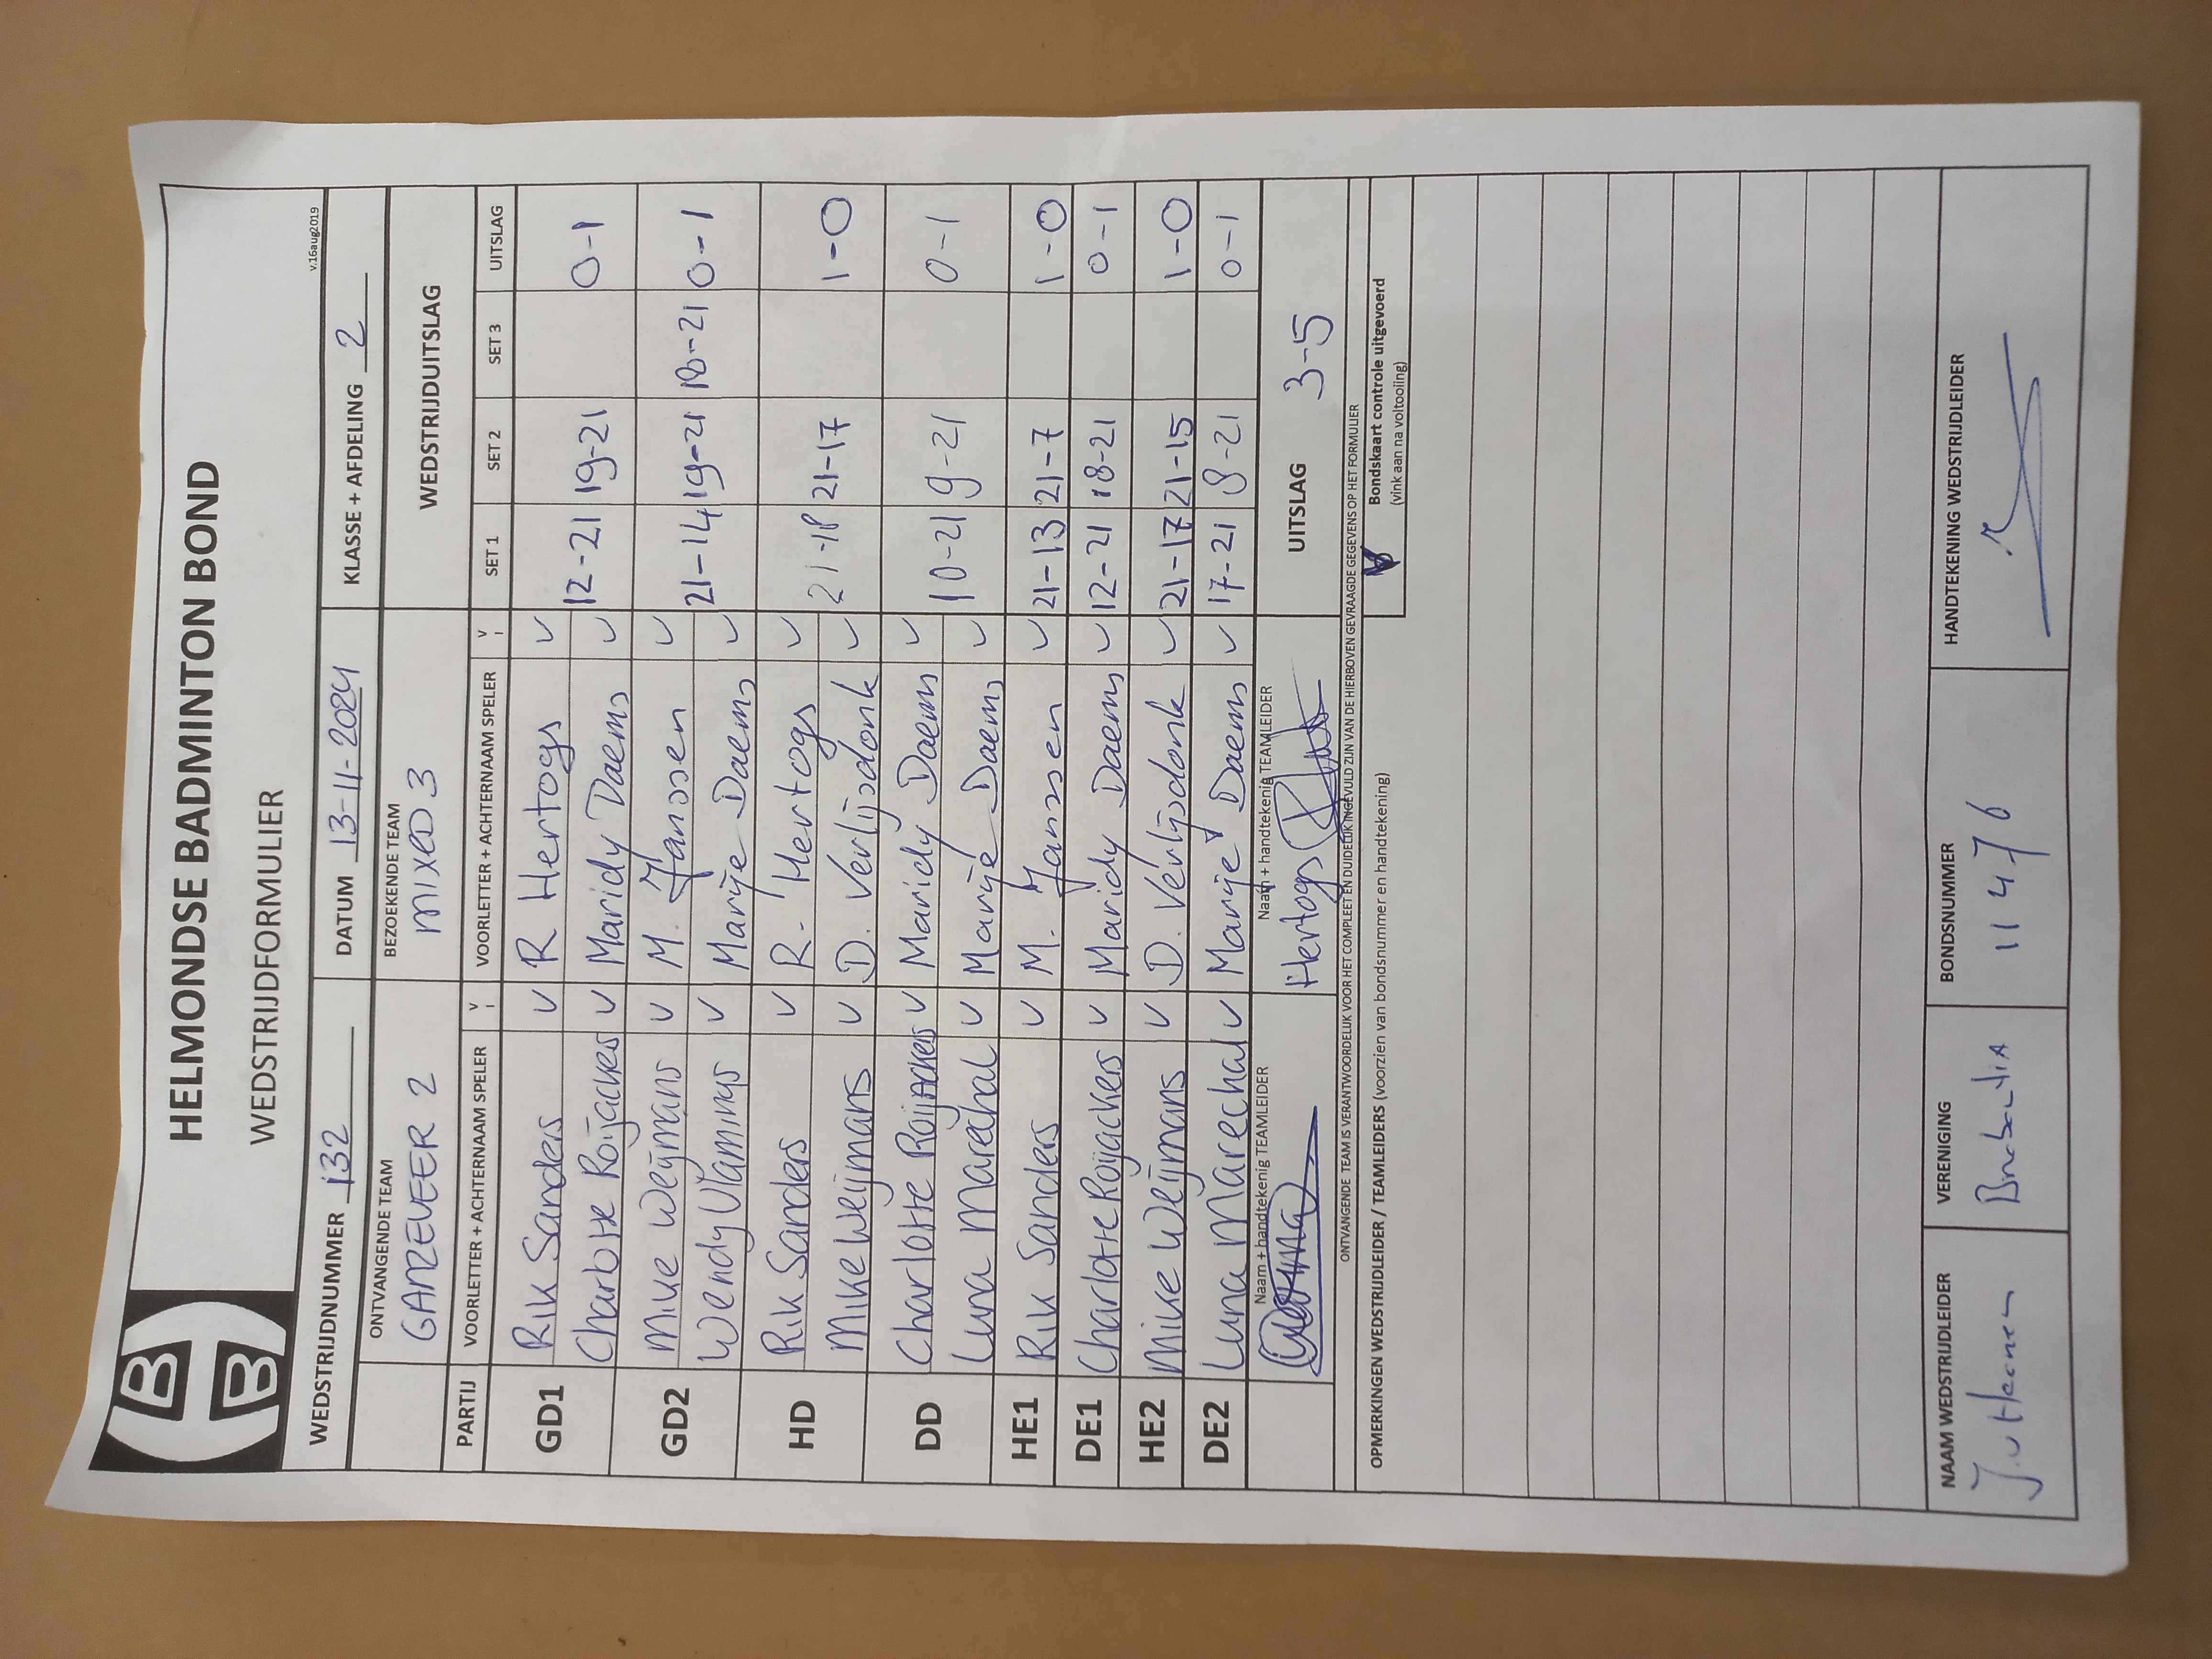 HBB
HELMONDSE BADMINTON BOND
WEDSTRIJDFORMULIER
v.16aug2019
WEDSTRIJDNUMMER 132 DATUM 13-11-2024 KLASSE + AFDELING 2
ONTVANGENDE TEAM BEZOEKENDE TEAM WEDSTRIJDUITSLAG
GANZEVEER 2 MIXED 3
PARTIJ VOORLETTER + ACHTERNAAM SPELER V VOORLETTER + ACHTERNAAM SPELER V SET 1 SET 2 SET 3 UITSLAG
GD1 Rik Sanders V R Hertogs V
Charlotte Roijackers V Maridy Daems V 12-21 19-21 0-1
GD2 Mike Weijmans V M. Janssen V
Wendy Vlamings V Marije Daems V 21-14 19-21 18-21 0-1
HD Rik Sanders V R. Hertogs V
Mike Weijmans V D. Verlijsdonk V 21-18 21-17 1-0
DD Charlotte Roijackers V Maridy Daems V
Luna Marechal V Marije Daems V 10-21 9-21 0-1
HE1 Rik Sanders V M. Janssen V 21-13 21-7 1-0
DE1 Charlotte Roijackers V Maridy Daems V 12-21 18-21 0-1
HE2 Mike Weijmans V D. Verlijsdonk V 21-17 21-15 1-0
DE2 Luna Marechal V Marije Daems V 17-21 8-21 0-1
Naam + handtekenig TEAMLEIDER Naam + handtekenig TEAMLEIDER
Hertogs UITSLAG 3-5
ONTVANGENDE TEAM IS VERANTWOORDELIJK VOOR HET COMPLEET EN DUIDELIJK INGEVULD ZIJN VAN DE HIERBOVEN GEVRAAGDE GEGEVENS OP HET FORMULIER
OPMERKINGEN WEDSTRIJDLEIDER / TEAMLEIDERS (voorzien van bondsnummer en handtekening)
Bondskaart controle uitgevoerd
(vink aan na voltooling)
NAAM WEDSTRIJDLEIDER VERENIGING BONDSNUMMER HANDTEKENING WEDSTRIJDLEIDER
11476